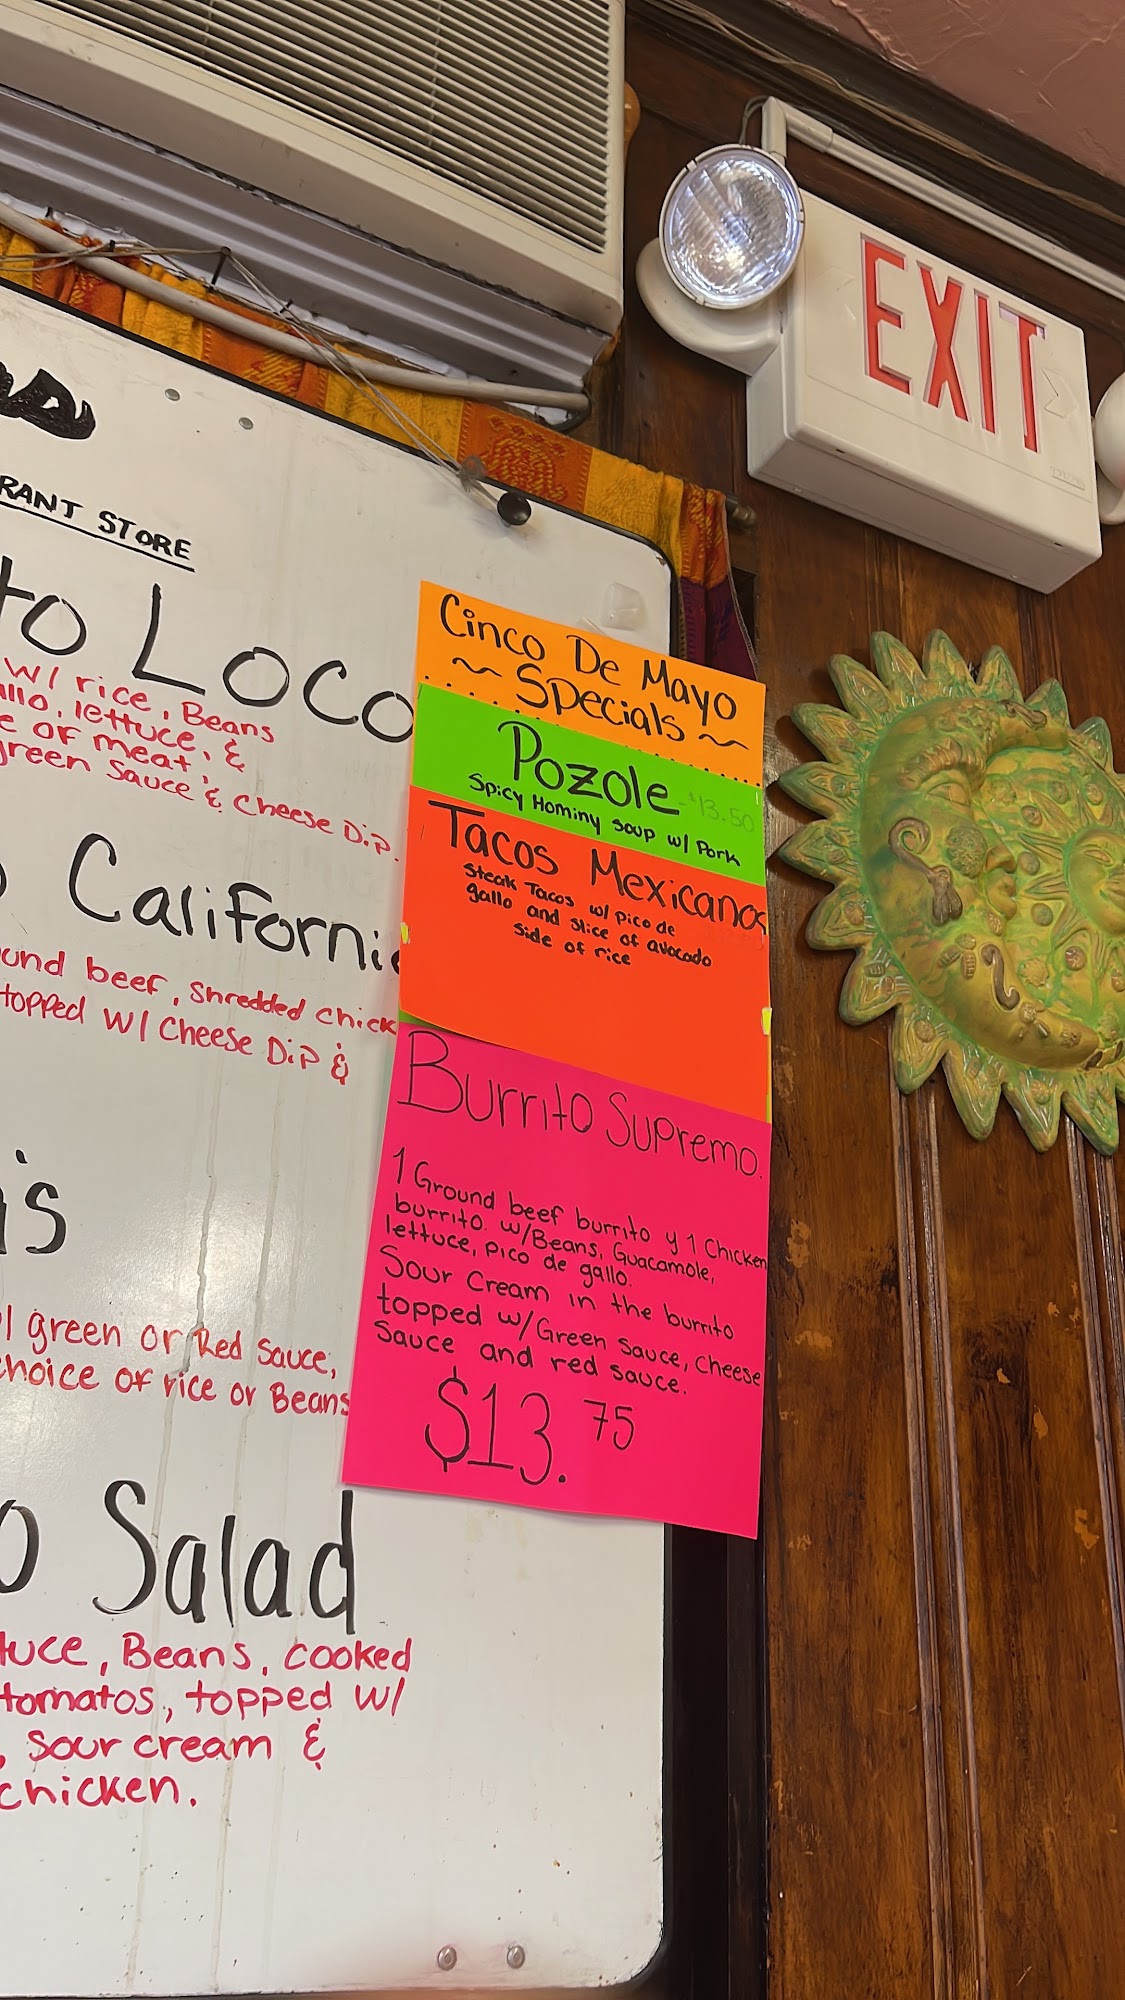 RANT STORE
to Loco
w/ rice, Beans
llo, lettuce, &
e of meat,
green Sauce & Cheese Dip.
California
und beef, shredded chick
topped w/ Cheese Dip &
is
green or Red Sauce,
choice of rice or Beans
o Salad
tuce, Beans, cooked
tomatos, topped w/
, sour cream &
chicken.
Cinco De Mayo
~ Specials ~
Pozole - $13.50
Spicy Hominy Soup w/ Pork
Tacos Mexicanos
Steak Tacos w/ pico de
gallo and slice of avocado
side of rice
Burrito Supremo.
1 Ground beef burrito y 1 Chicken
burrito. w/Beans, Guacamole,
lettuce, pico de gallo.
Sour Cream in the burrito
topped w/Green Sauce, Cheese
Sauce and red sauce.
$13.75
EXIT